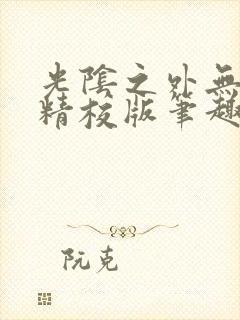 光陰之外無
精校版筆趣
阮克